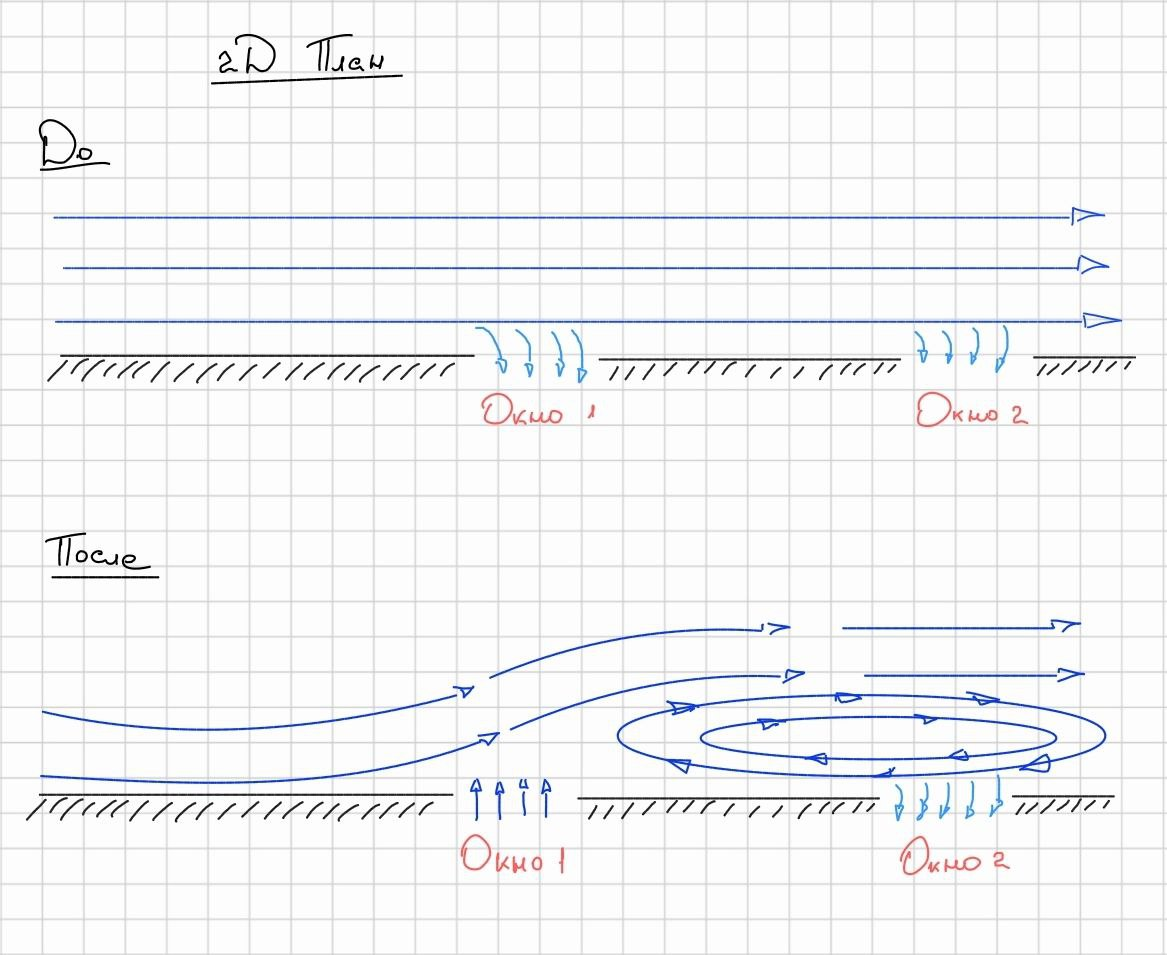 2D План
До
Окно 1
Окно 2
После
Окно 1
Окно 2